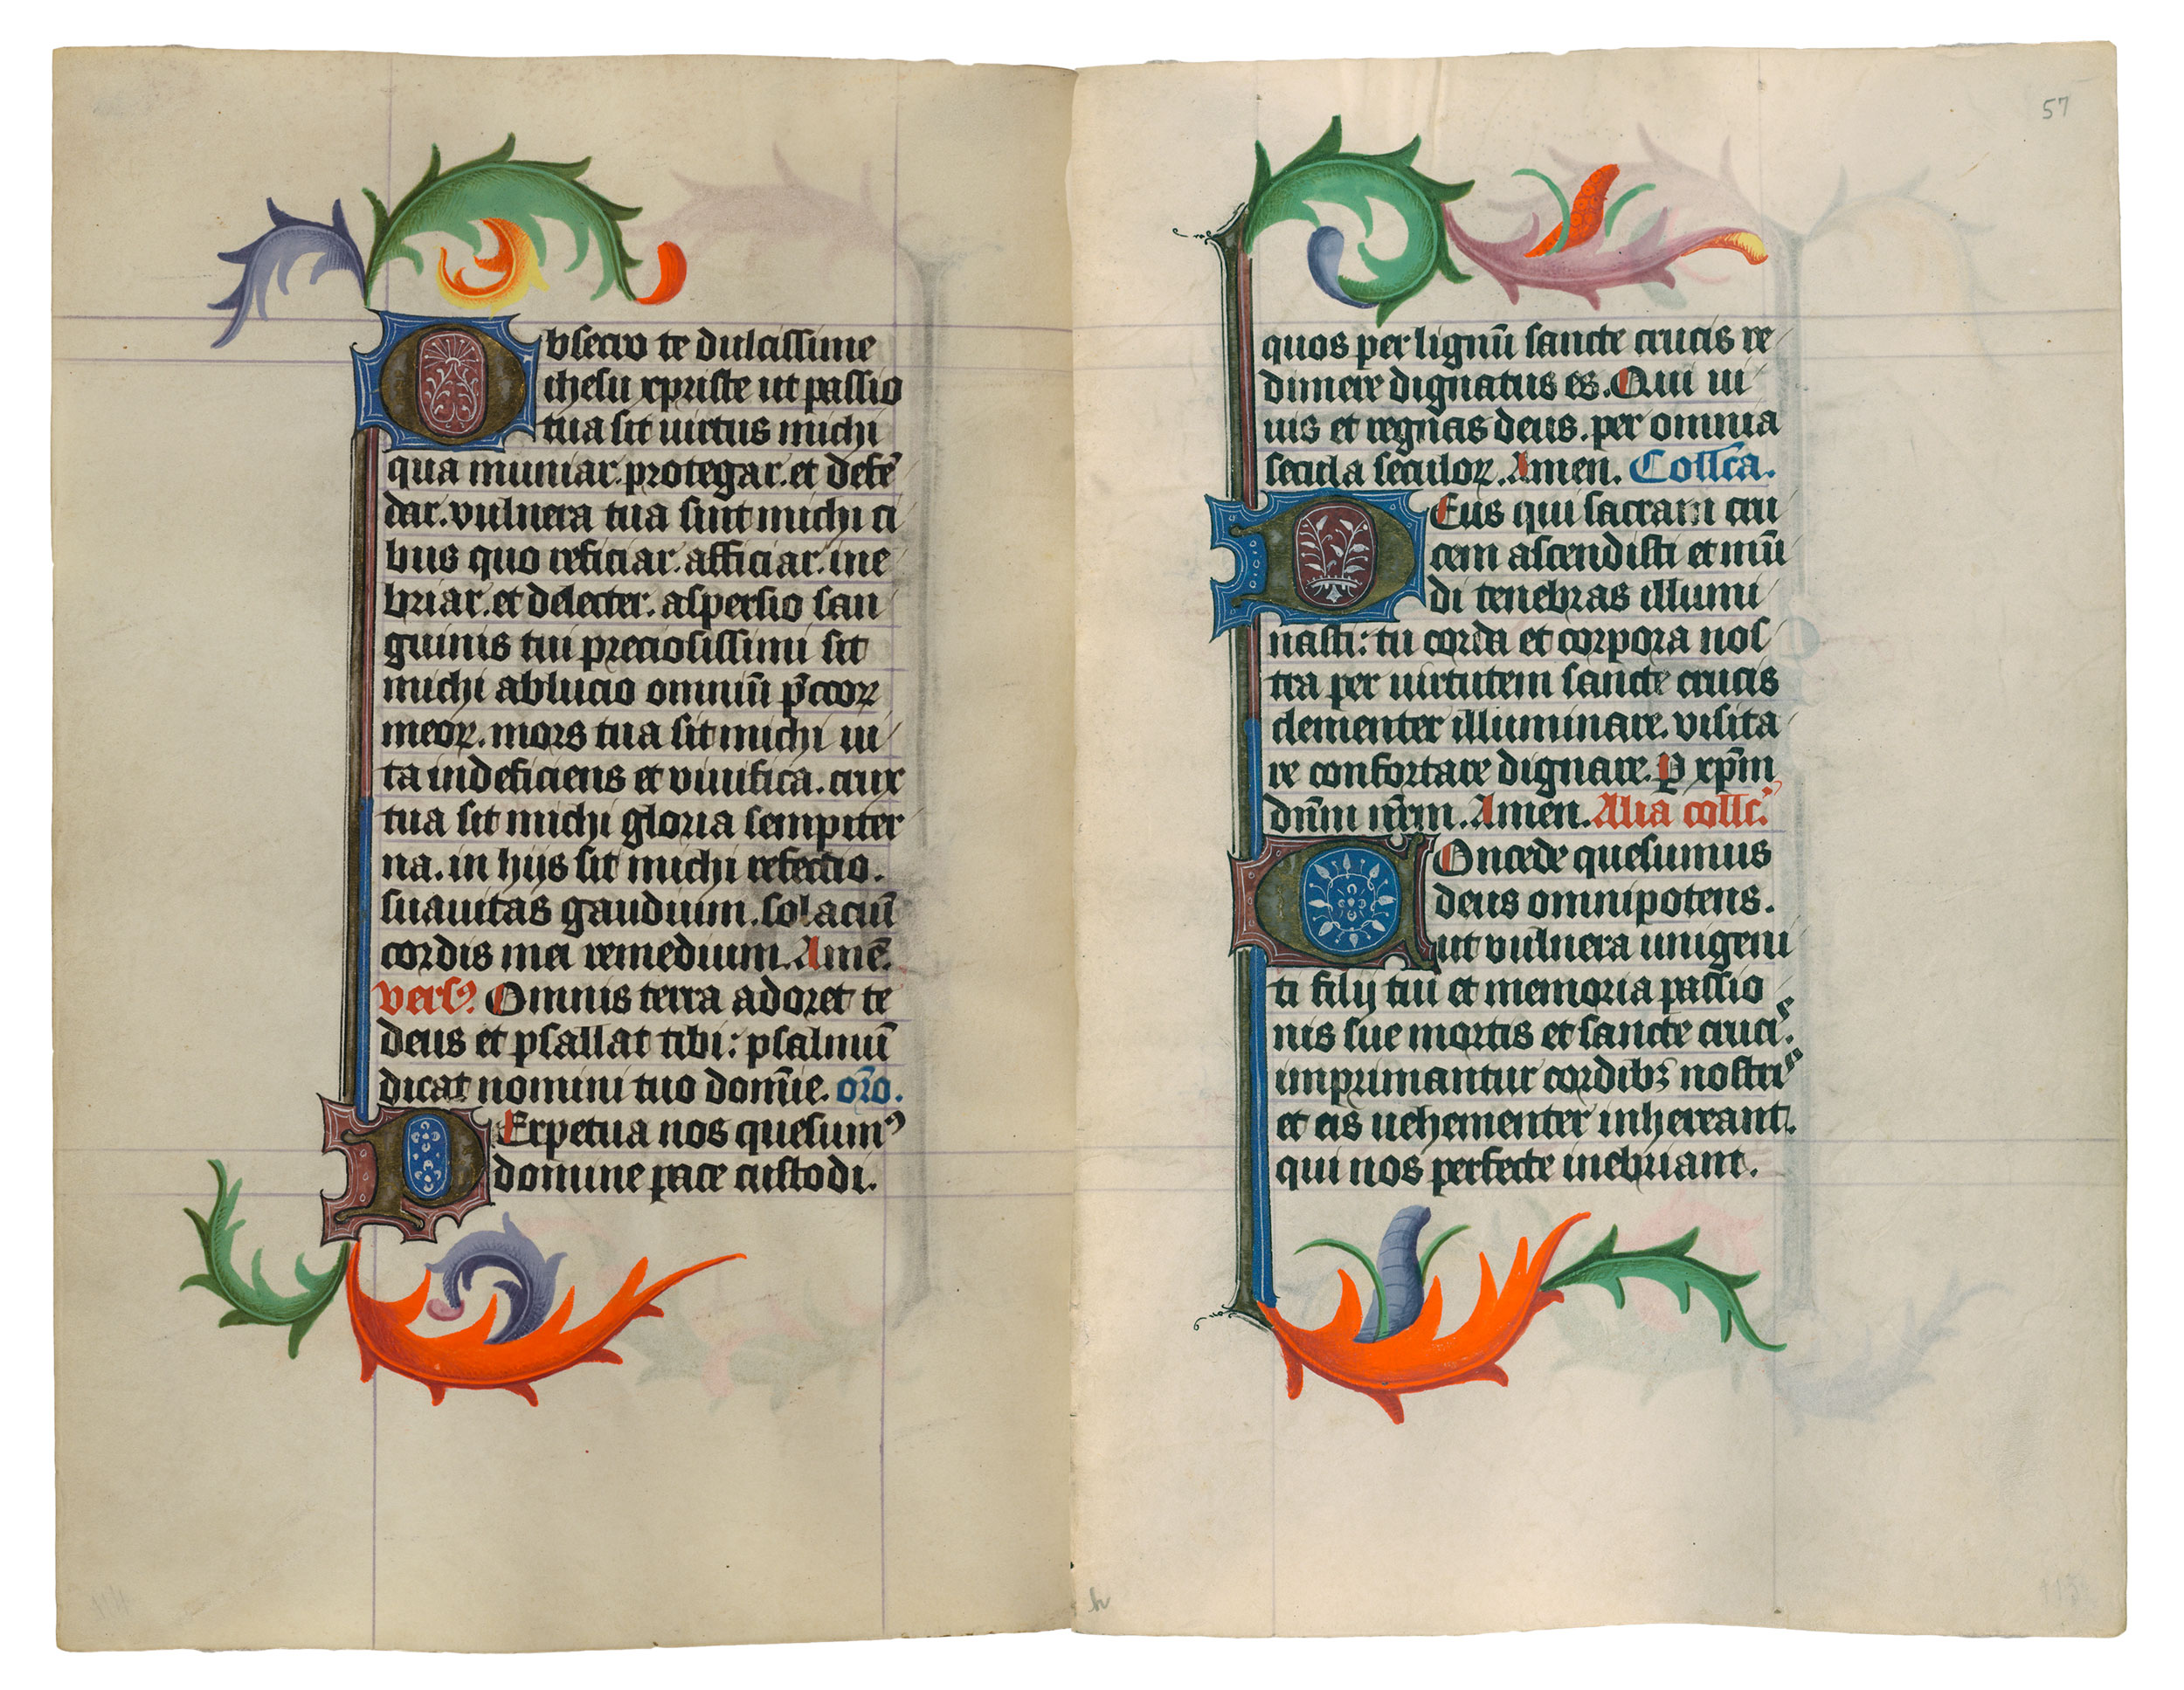 Obsecro te dulcissime
ihesu xpriste ut passio
tua sit uirtus michi
qua muniar. protegar. et defē
dar. vulnera tua sint michi ci
bus quo reficiar. afficiar. ine
briar. et delecter. aspersio san
guinis tui preciosissimi sit
michi ablucio omniū p̄ccoꝝ
meoꝝ. mors tua sit michi ui
ta indeficiens et viuifica. crux
tua sit michi gloria sempiter
na. in hijs sit michi refectio.
suauitas gaudium. solaciū
cordis mei remedium. Amē.
versꝰ. Omnis terra adoret te
deus et psallat tibi: psalmū
dicat nomini tuo domīe. or̄o.
PErpetua nos quesumꝰ
domine pace custodi.
57
quos per lignū sancte crucis re
dimere dignatus es. Qui ui
uis et regnas deus. per omnia
secula seculoꝝ. Amen. Coll̄ca.
DEus qui sacram cru
cem ascendisti et mū
di tenebras illumi
nasti: tu corda et corpora nos
tra per uirtutem sancte crucis
clementer illuminare. visita
re confortare dignare. P xp̄m
dn̄m nr̄m. Amen. Alia collc̄.
COncede quesumus
deus omnipotens.
ut vulnera unigeni
ti filij tui et memoria passio
nis sue mortis et sancte crucis.
imprimantur cordibꝫ nostris
et eis uehementer inhereant.
qui nos perfecte inebriant.
114
h
115